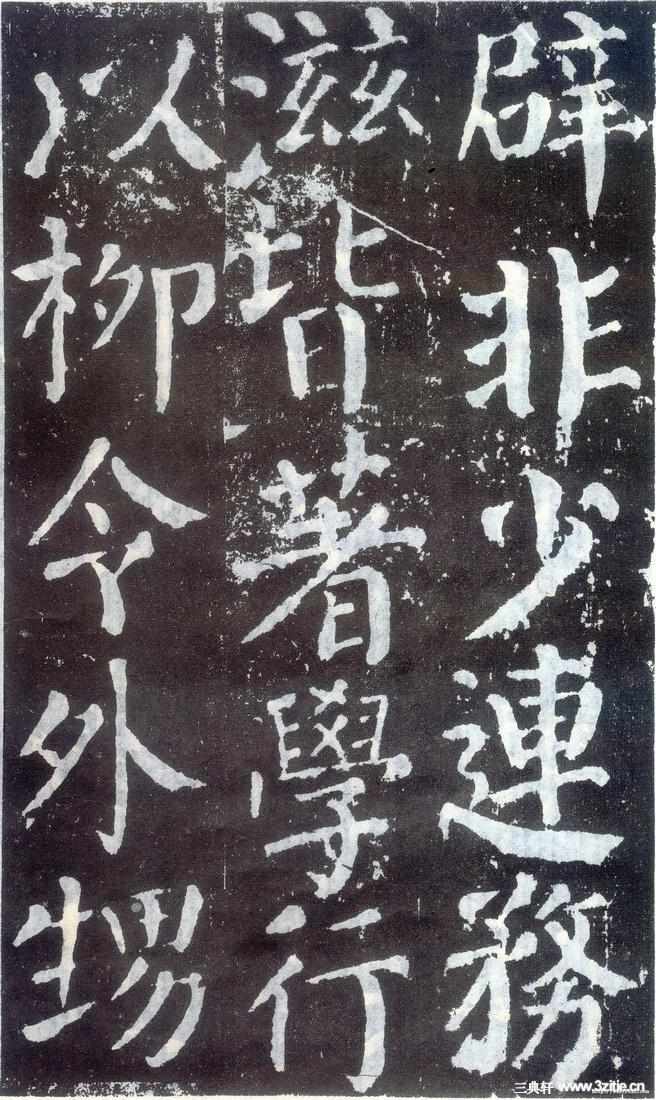 辟非少連務
滋皆著學行
以柳令外甥
三典轩 www.3zitie.cn